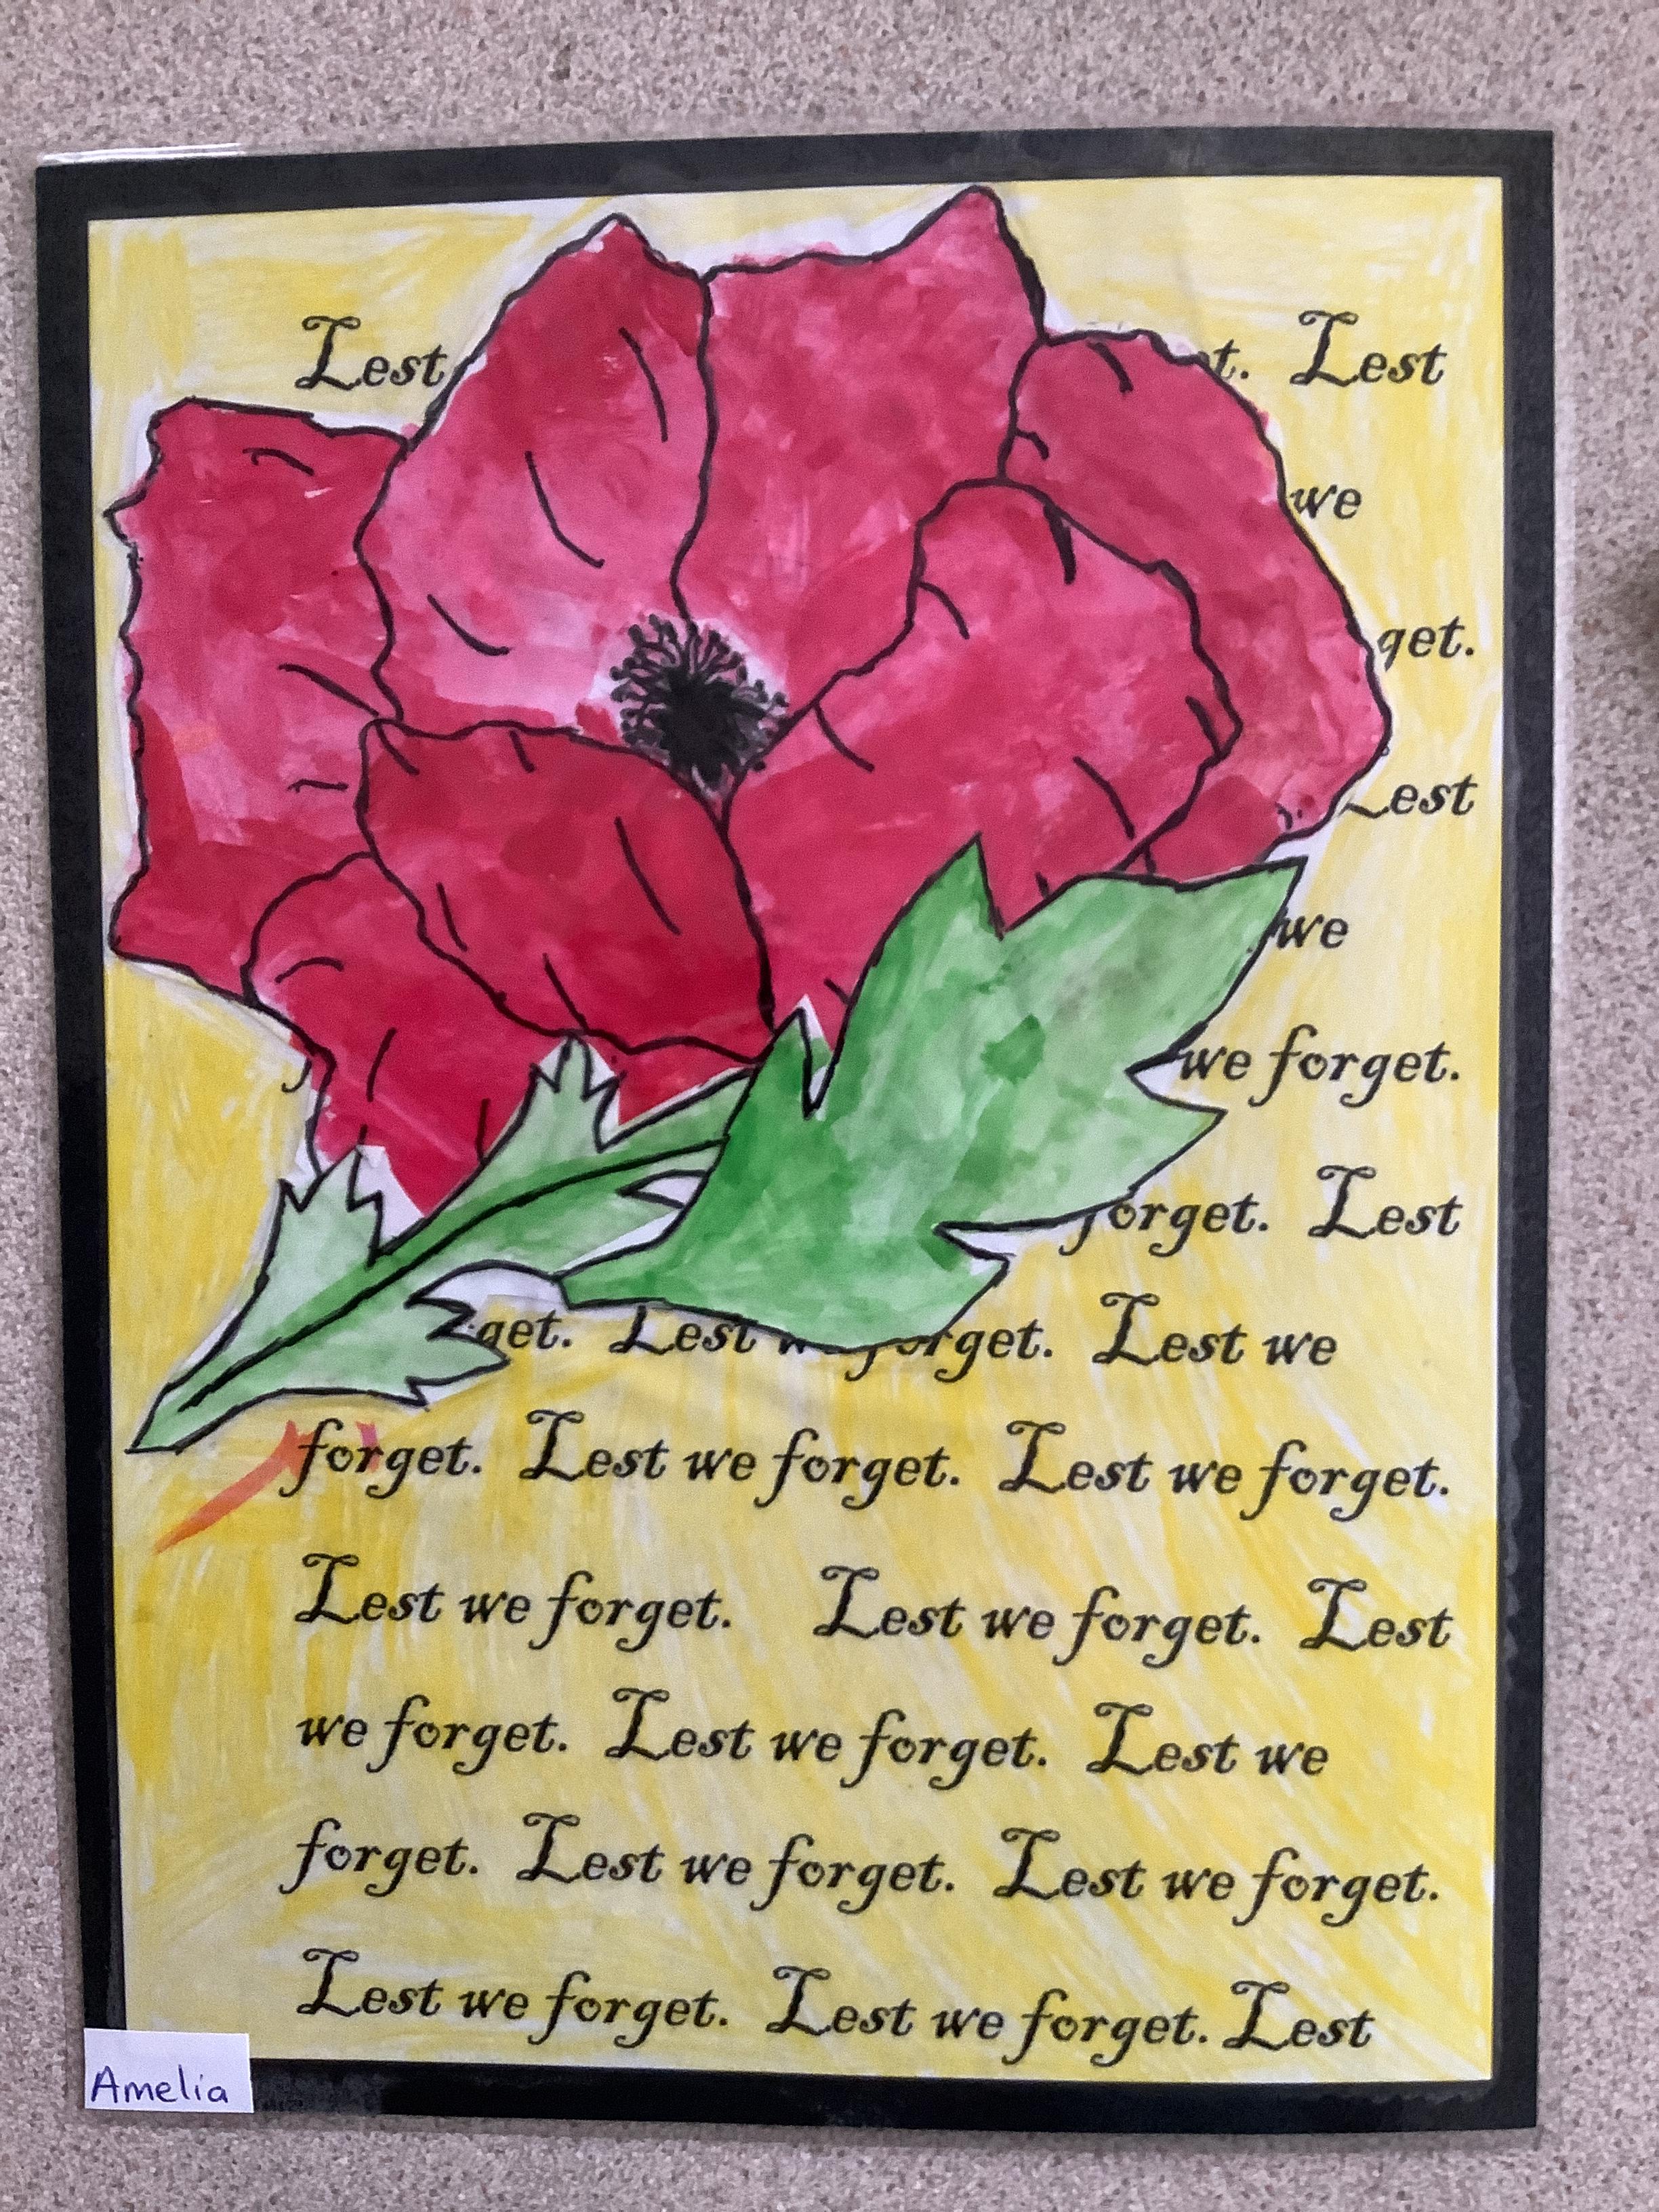 Lest t. Lest
we
get.
Lest
we
we forget.
forget. Lest
get. Lest we forget. Lest we
forget. Lest we forget. Lest we forget.
Lest we forget. Lest we forget. Lest
we forget. Lest we forget. Lest we
forget. Lest we forget. Lest we forget.
Lest we forget. Lest we forget. Lest
Amelia